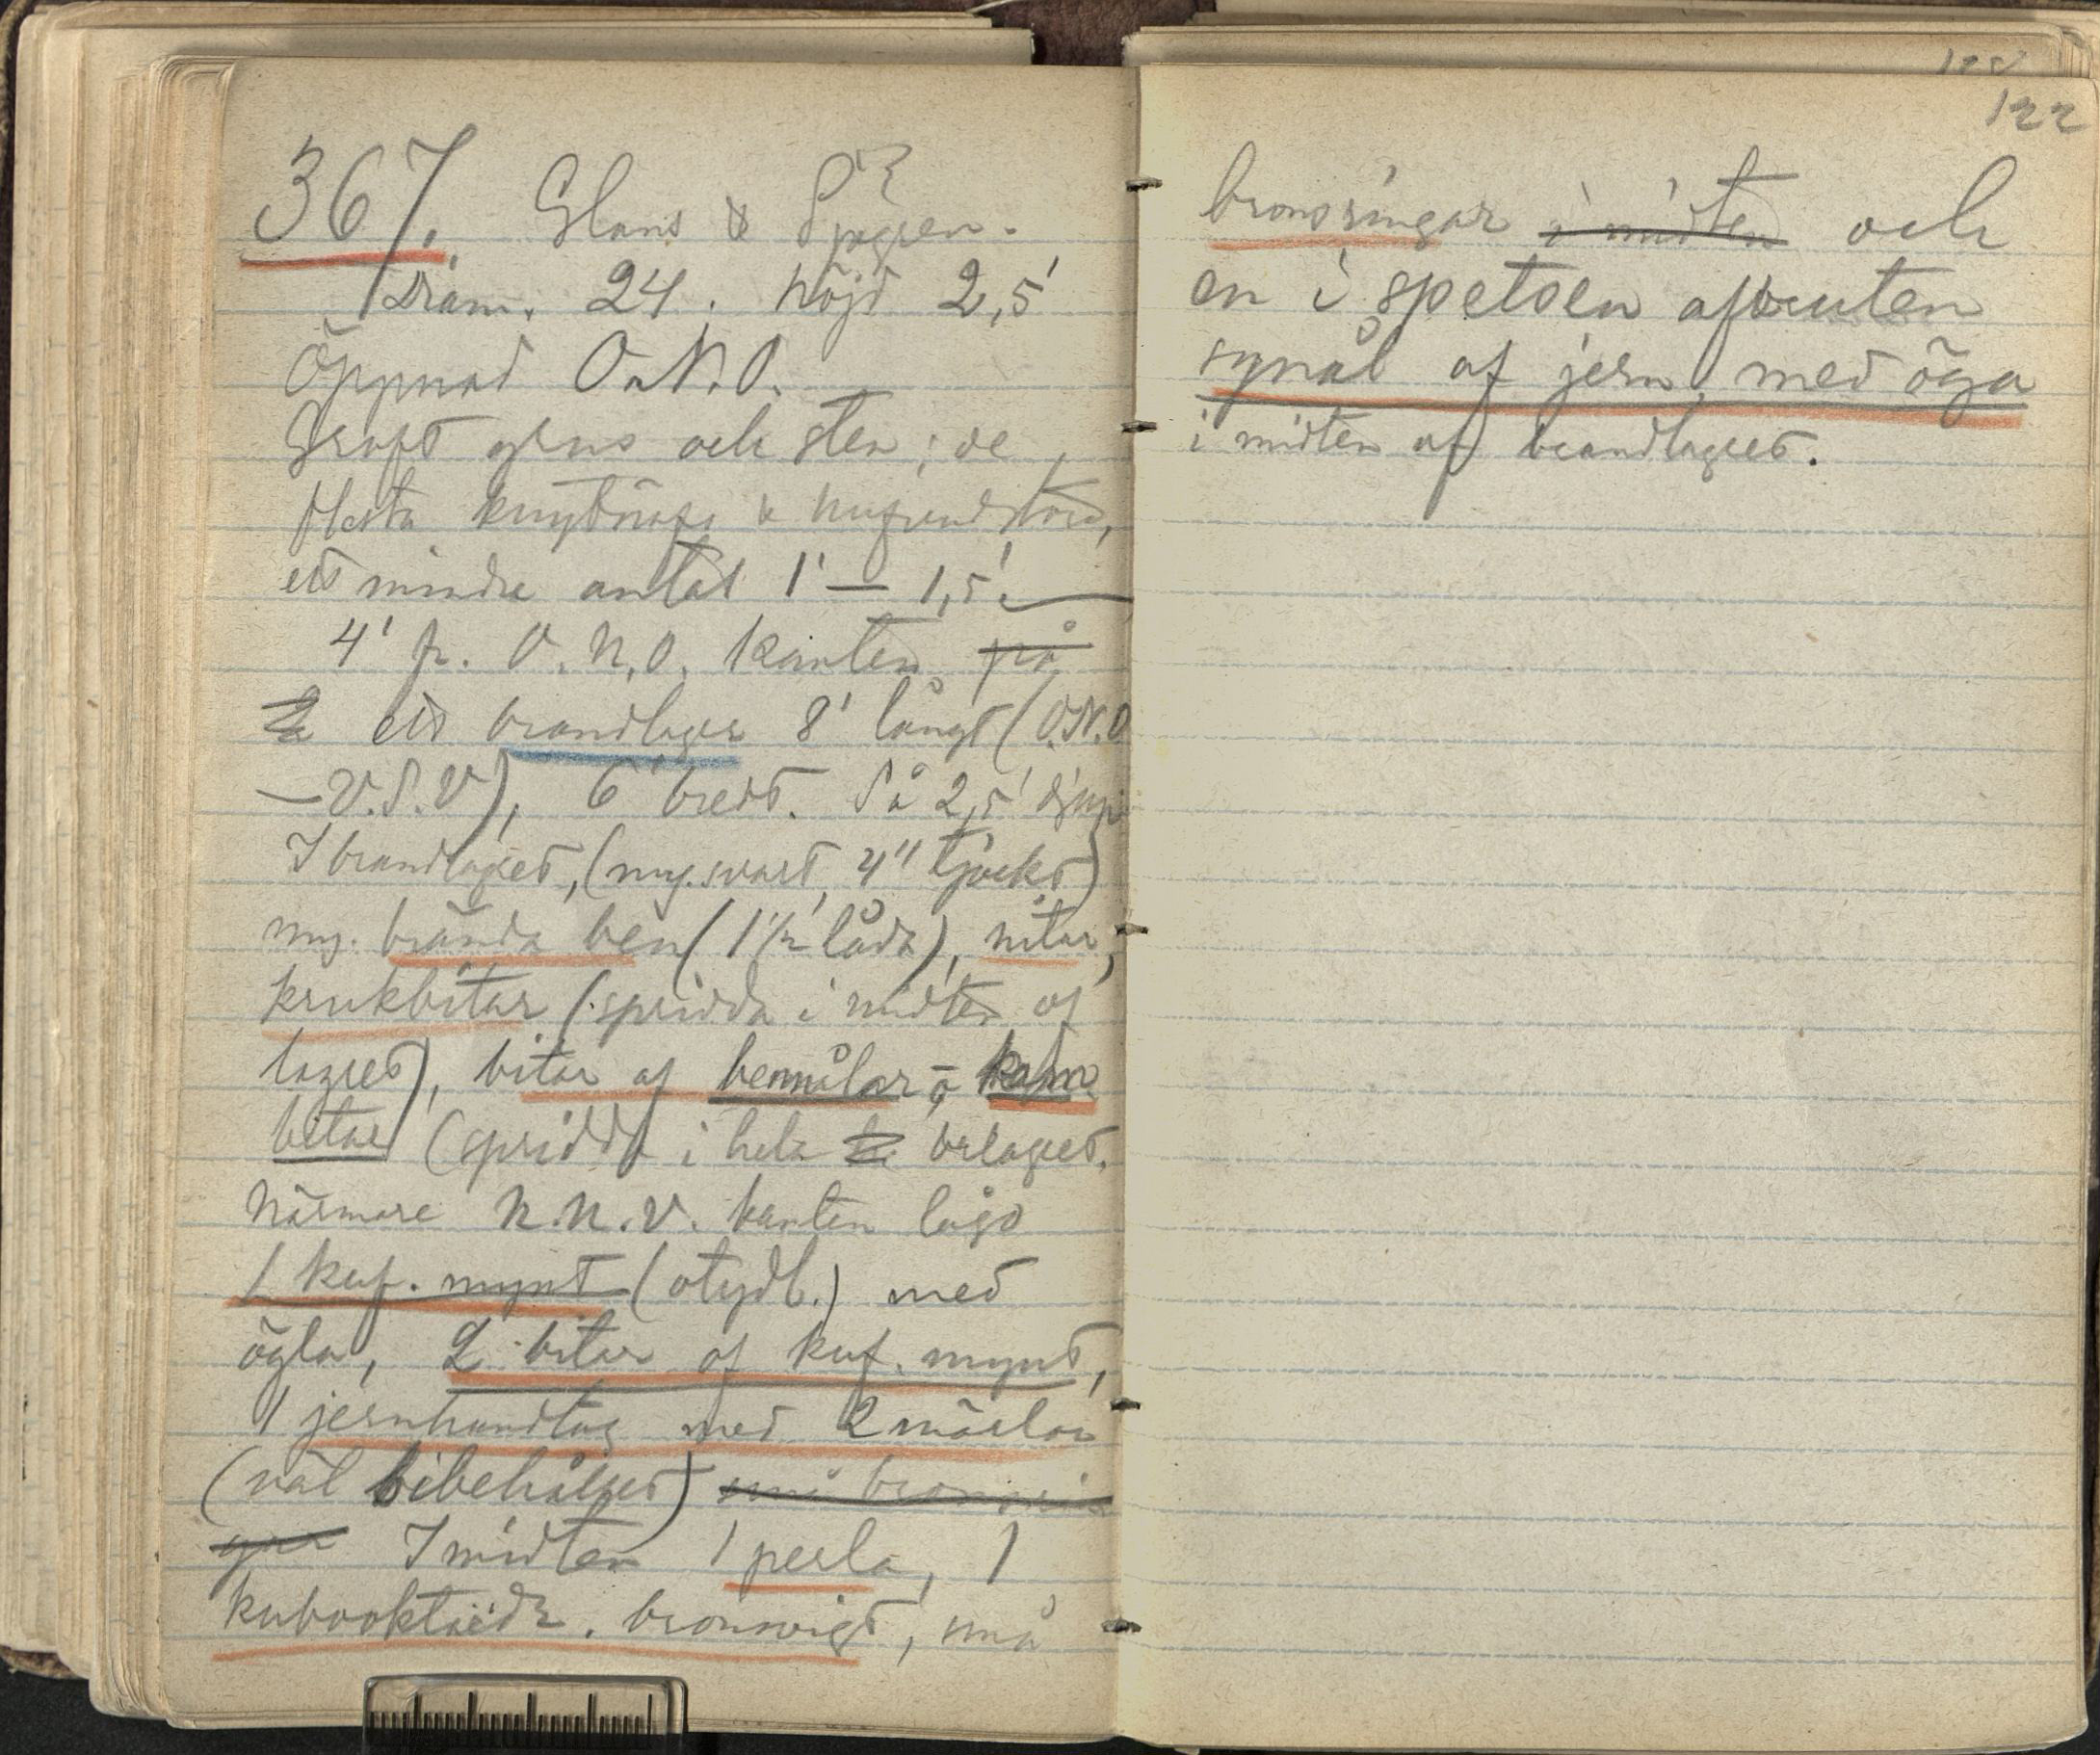 367. Glans &
Diam. 24. höjd 2,5'
Öppnad O.N.O.
Groft grus och sten; de
flesta knytnäfs & hufvudstora,
ett mindre antal 1' — 1,5'.
4' fr. O.N.O. kanten på
ett brandlager 8' långt (O.N.O
— V.S.V), 6' bredt. På 2,5' djup
I brandlagret, (my. svart, 4" tjockt)
my. brända ben (1 1/2 låda), nitar,
krukbitar (spridda i midten af
lagret), bitar af bennålar, o kam
bitar (spridda i hela brlagret.
Närmare N.N.V. kanten lågo
1 kuf. mynt (otydl.) med
ögla, 2 bitar af kuf. mynt,
1 jernhandtag med 2 märlor
(väl bibehållet) små bronsrin
gar I midten 1 perla, 1
kubooktaedr. bronsvigt, små
122
bronsringar i midten och
en i spetsen afbruten
synål af jern med öga
i midten af brandlagret.